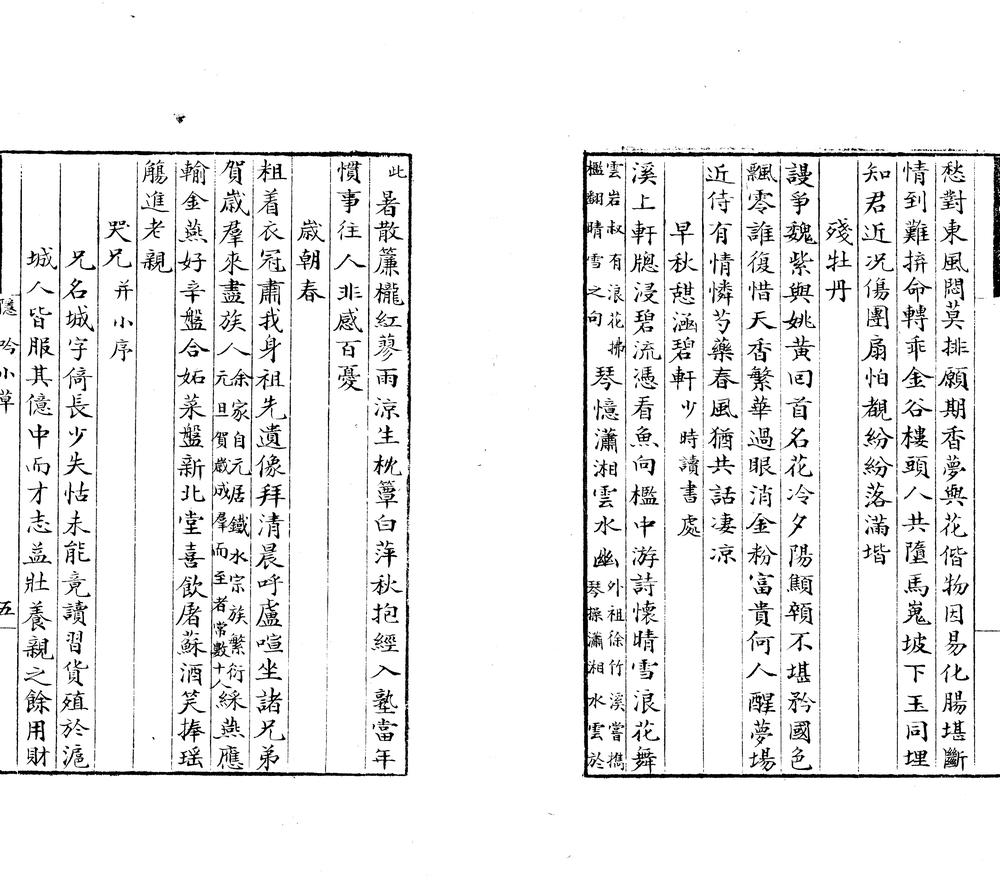 愁對東風悶莫排願期香夢與花偕物因易化腸堪斷
情到難捹命轉乖金谷樓頭人共墮馬嵬坡下玉同埋
知君近况傷團扇怕覩紛紛落滿堦
殘牡丹
謾爭魏紫與姚黃回首名花冷夕陽顦顇不堪矜國色
飄零誰復惜天香繁華過眼消金粉富貴何人醒夢場
近侍有情憐芍藥春風猶共話凄凉
早秋憇涵碧軒少時讀書處
溪上軒牕浸碧流憑看魚向檻中游詩懷晴雪浪花舞
雲岩叔有浪花拂檻翻晴雪之句琴憶瀟湘雲水幽外祖徐竹溪嘗擕琴操瀟湘水雲於
此暑散簾櫳紅蓼雨涼生枕簟白萍秋抱經入塾當年
慣事往人非感百憂
歲朝春
粗着衣冠肅我身祖先遺像拜清晨呼盧喧坐諸兄弟
賀歲羣來盡族人余家自元居鐵水宗族繁衍元旦賀歲成羣而至者常數十人綵燕應
輸金燕好辛盤合妬菜盤新北堂喜飲屠蘇酒笑捧瑶
觴進老親
哭兄并小序
兄名城字倚長少失怙未能竟讀習貨殖於滬
城人皆服其億中而才志益壯養親之餘用財
隱吟小草
五